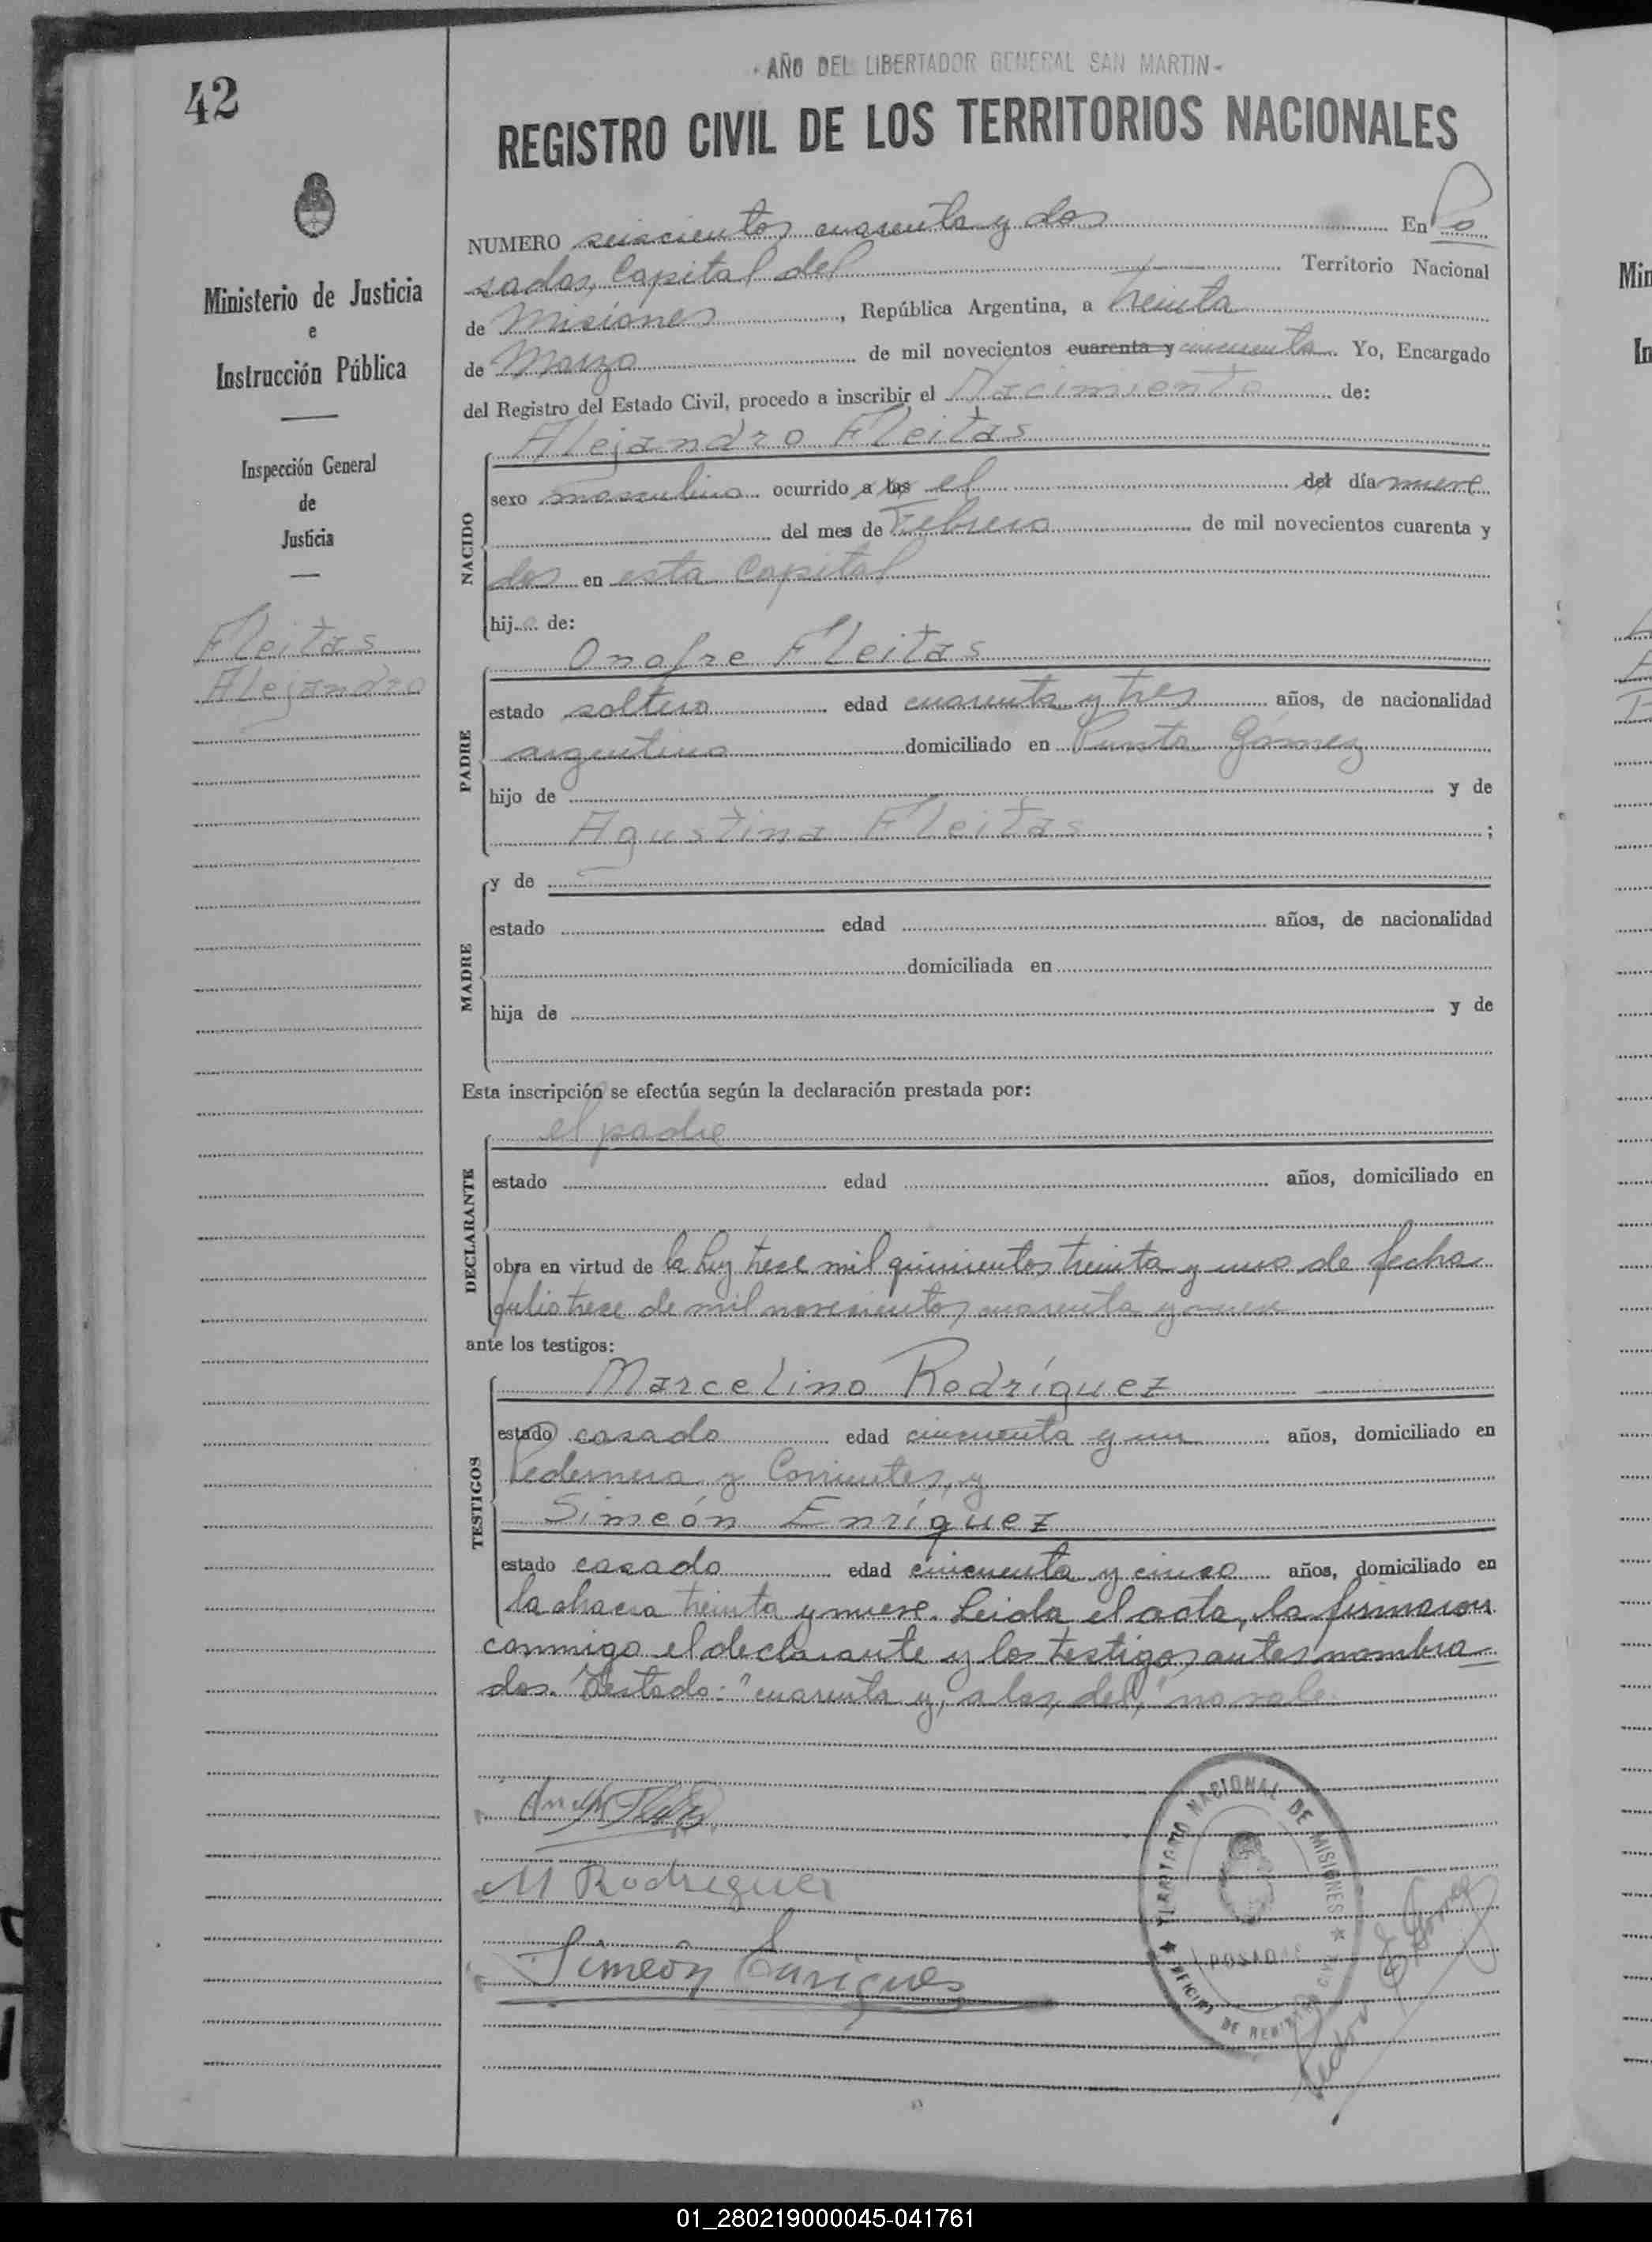 42
- AÑO DEL LIBERTADOR GENERAL SAN MARTIN -
REGISTRO CIVIL DE LOS TERRITORIOS NACIONALES
Ministerio de Justicia
e
Instrucción Pública
Inspección General
de
Justicia
Fleitas
Alejandro
NUMERO seiscientos cuarenta y dos En Po
sadas, Capital del Territorio Nacional
de Misiones, República Argentina, a treinta
de Marzo de mil novecientos cuarenta y cincuenta. Yo, Encargado
del Registro del Estado Civil, procedo a inscribir el Nacimiento de:
Alejandro Fleitas
NACIDO
sexo masculino ocurrido a las el del día nueve
del mes de Febrero de mil novecientos cuarenta y
dos en esta Capital
hijo de:
Onofre Fleitas
PADRE
estado soltero edad cuarenta y tres años, de nacionalidad
argentino domiciliado en Punta Gómez
hijo de y de
Agustina Fleitas ;
MADRE
y de
estado edad años, de nacionalidad
domiciliada en
hija de y de
Esta inscripción se efectúa según la declaración prestada por:
el padre
DECLARANTE
estado edad años, domiciliado en
obra en virtud de la ley trece mil quinientos treinta y uno de fecha
Julio trece de mil novecientos cuarenta y nueve
ante los testigos:
Marcelino Rodríguez
TESTIGOS
estado casado edad cincuenta y un años, domiciliado en
Pedernera y Corrientes, y
Simeón Enríquez
estado casado edad cincuenta y cinco años, domiciliado en
la chacra treinta y nueve. Leida el acta, la firmaron
conmigo el declarante y los testigos antes nombra
dos. Testado: "cuarenta y, a las, del," no vale.
M Rodriguez
Simeón Enrigues
TERRITORIO NACIONAL DE MISIONES
POSADAS
OFICINA DE REGISTRO CIVIL
01_280219000045-041761